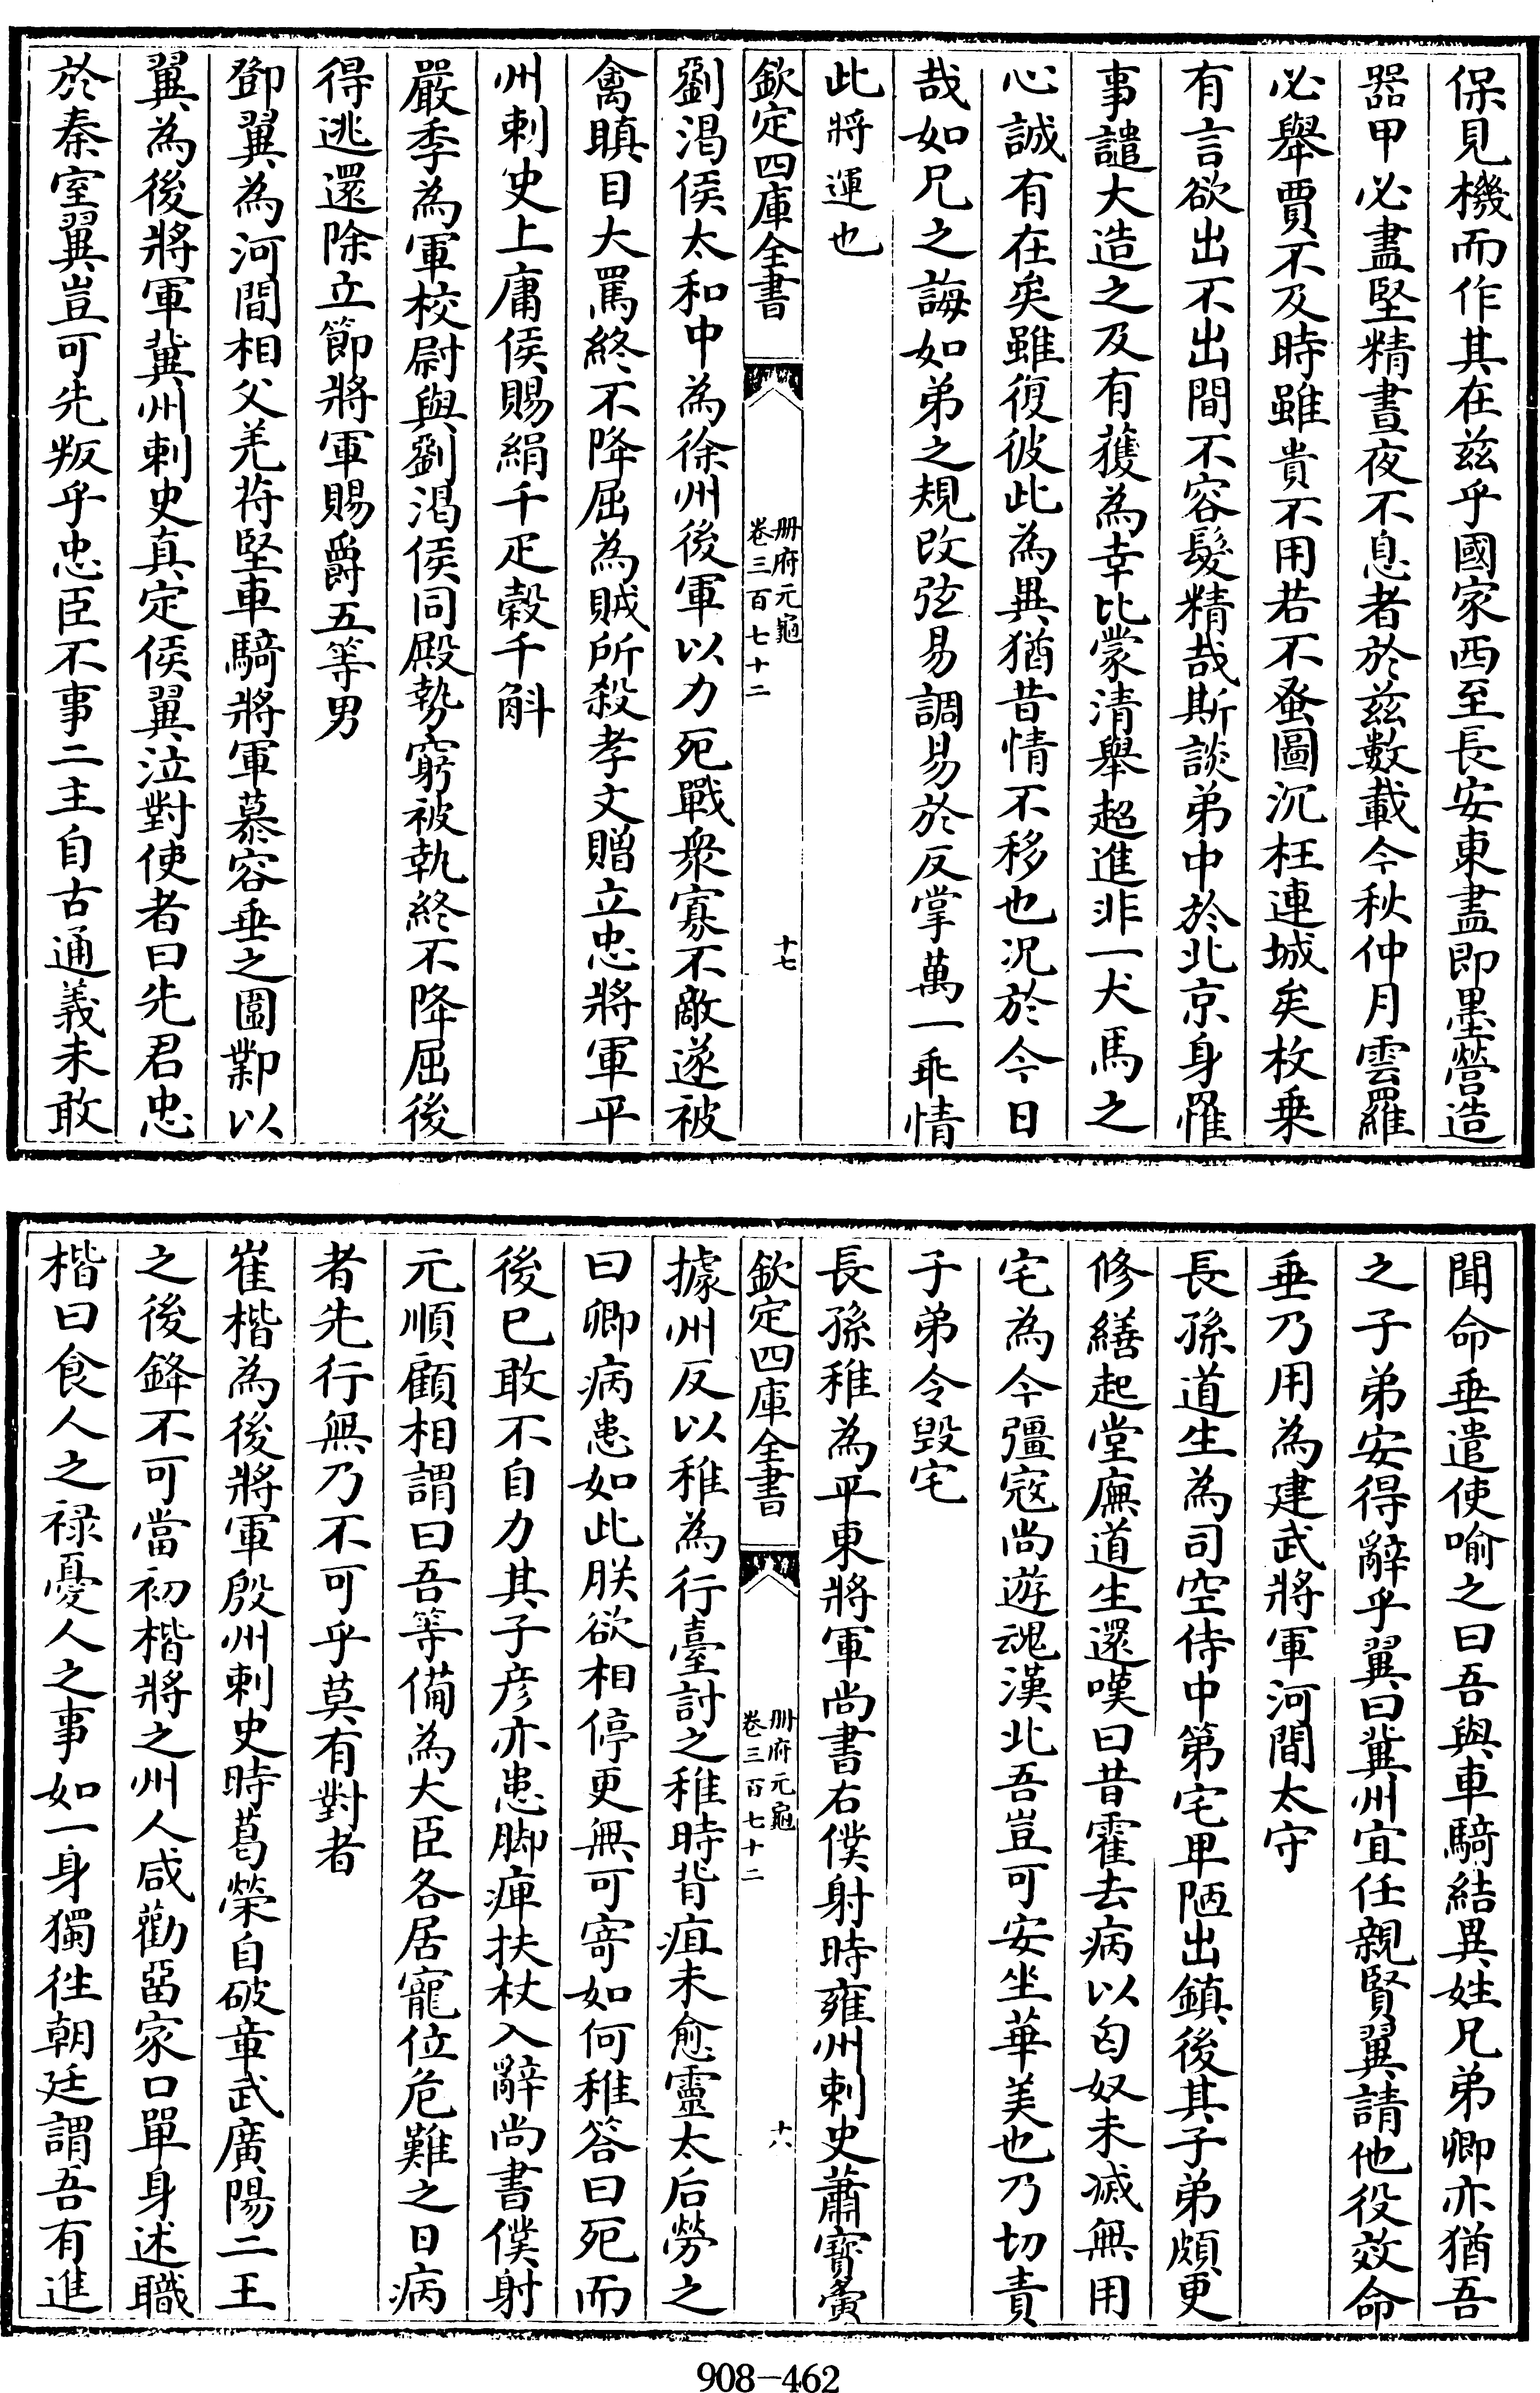 保見機而作其在兹乎國家西至長安東盡即墨營造
器甲必盡堅精晝夜不息者於兹數載今秋仲月雲羅
必舉賈不及時雖貴不用若不蚤圖沉枉連城矣枚乗
有言欲出不出間不容髮精哉斯談弟中於北京身罹
事譴大造之及有獲為幸比蒙清舉超進非一犬馬之
心誠有在矣雖復彼此為異猶昔情不移也况於今日
哉如兄之誨如弟之規改弦易調易於反掌萬一乖情
此將運也
欽定四庫全書
册府元龜
卷三百七十二
十七
劉渴侯太和中為徐州後軍以力死戰衆寡不敵遂被
禽瞋目大罵終不降屈為賊所殺孝文贈立忠將軍平
州刺史上庸侯賜絹千疋榖千斛
嚴季為軍校尉與劉渴侯同殿勢窮被執終不降屈後
得逃還除立節將軍賜爵五等男
鄧翼為河間相父羌苻堅車騎將軍慕容垂之圍鄴以
翼為後將軍冀州刺史真定侯翼泣對使者曰先君忠
於秦室翼豈可先叛乎忠臣不事二主自古通義未敢
聞命垂遣使喻之曰吾與車騎結異姓兄弟卿亦猶吾
之子弟安得辭乎翼曰冀州宜任親賢翼請他役效命
垂乃用為建武將軍河間太守
長孫道生為司空侍中第宅卑陋出鎮後其子弟頗更
修繕起堂廡道生還嘆曰昔霍去病以匈奴未滅無用
宅為今彊寇尚遊魂漢北吾豈可安坐華美也乃切責
子弟令毁宅
長孫稚為平東將軍尚書右僕射時雍州刺史蕭寳夤
欽定四庫全書
册府元龜
卷三百七十二
十八
據州反以稚為行臺討之稚時背疽未愈靈太后勞之
曰卿病患如此朕欲相停更無可寄如何稚答曰死而
後已敢不自力其子彦亦患脚痺扶杖入辭尚書僕射
元順顧相謂曰吾等備為大臣各居寵位危難之日病
者先行無乃不可乎莫有對者
崔楷為後將軍殷州刺史時葛榮自破章武廣陽二王
之後鋒不可當初楷將之州人咸勸留家口單身述職
楷曰食人之禄憂人之事如一身獨徃朝廷謂吾有進
908-462